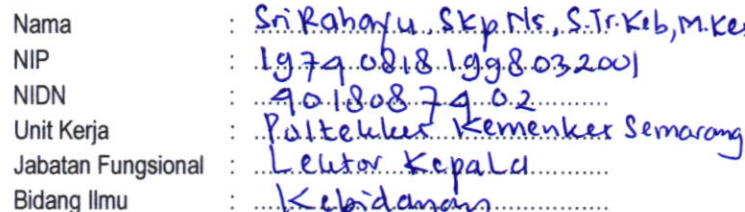 Nama : Sri Rahayu, Skp Ns, S.Tr.Keb, M.Kes
NIP : 197408181998032001
NIDN : 4018087402
Unit Kerja : Poltekkes Kemenkes Semarang
Jabatan Fungsional : Lektor Kepala
Bidang Ilmu : Kebidanan